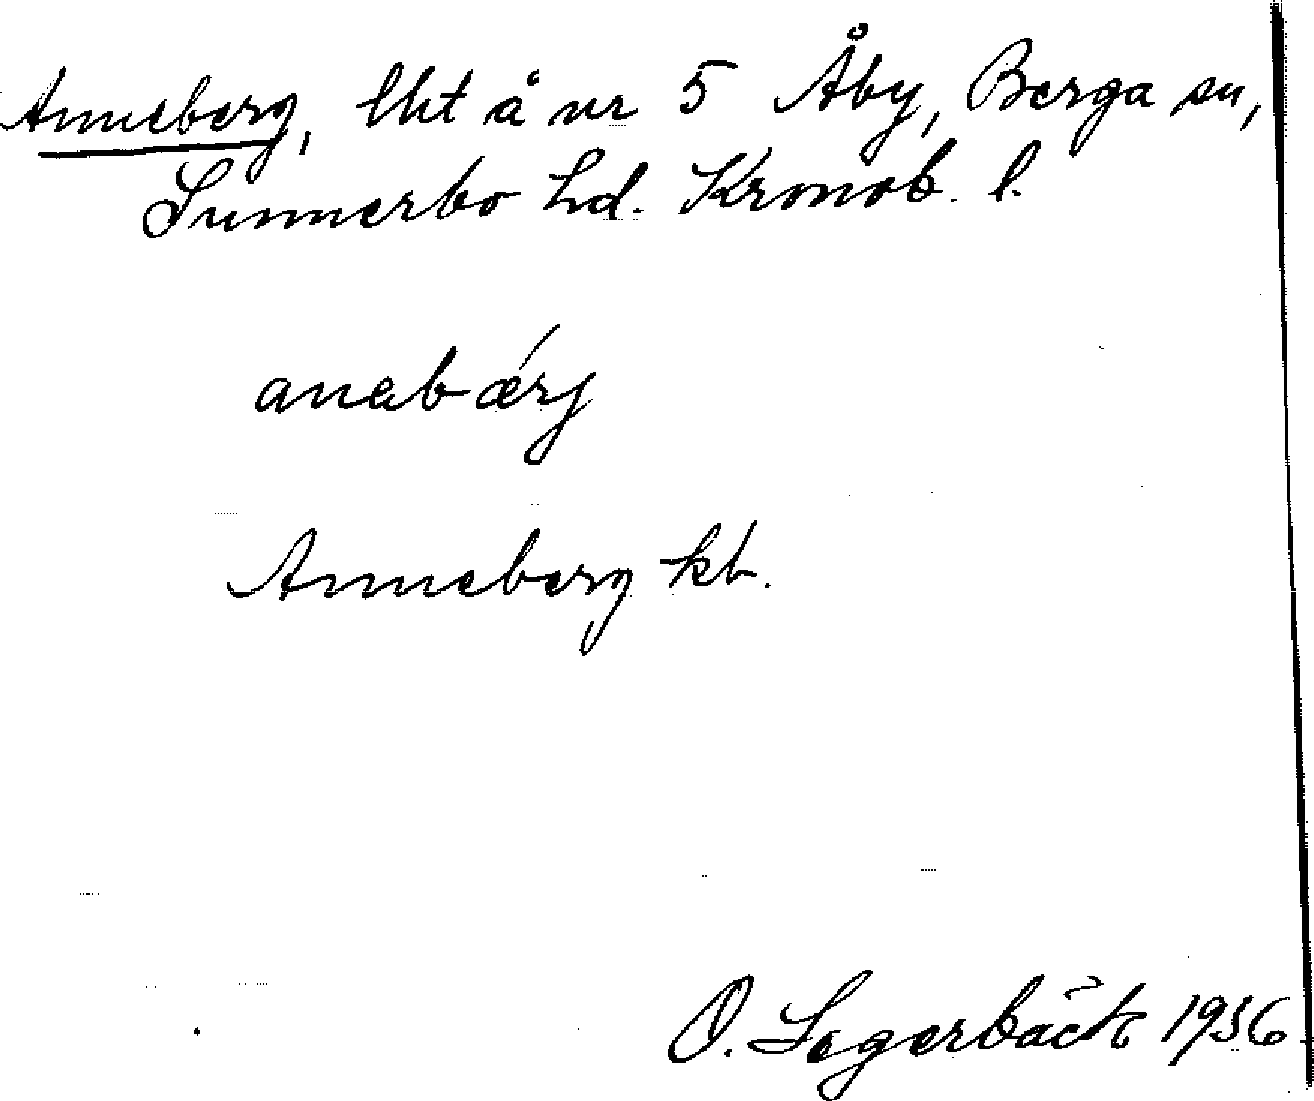 Anneberg, lht å nr 5 Åby, Berga sn,
Sunnerbo hd. Kronob. l.
anabærj
Anneberg kb.
O. Lagerbäck 1936